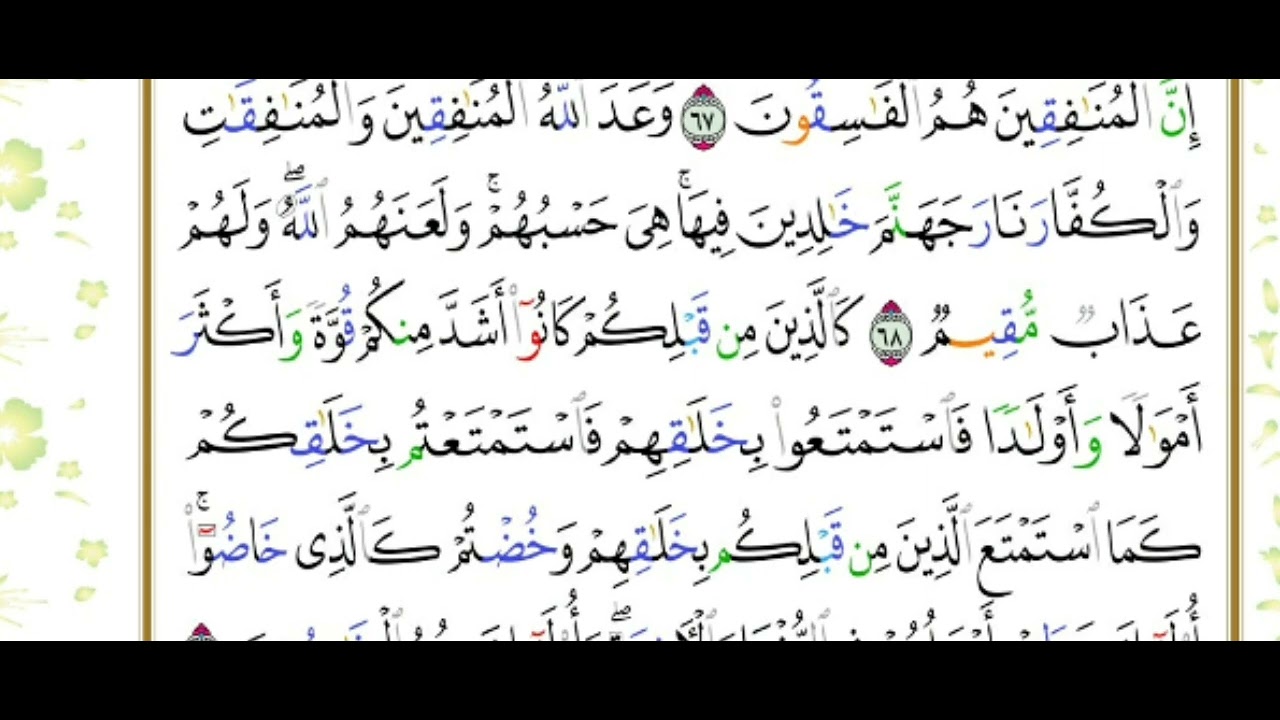 إِنَّ ٱلْمُنَـٰفِقِينَ هُمُ ٱلْفَـٰسِقُونَ ٦٧ وَعَدَ ٱللَّهُ ٱلْمُنَـٰفِقِينَ وَٱلْمُنَـٰفِقَـٰتِ
وَٱلْكُفَّارَ نَارَ جَهَنَّمَ خَـٰلِدِينَ فِيهَا ۚ هِىَ حَسْبُهُمْ ۚ وَلَعَنَهُمُ ٱللَّهُ ۖ وَلَهُمْ
عَذَابٌ مُّقِيمٌ ٦٨ كَٱلَّذِينَ مِن قَبْلِكُمْ كَانُوٓا۟ أَشَدَّ مِنكُمْ قُوَّةً وَأَكْثَرَ
أَمْوَٰلًا وَأَوْلَـٰدًا فَٱسْتَمْتَعُوا۟ بِخَلَـٰقِهِمْ فَٱسْتَمْتَعْتُم بِخَلَـٰقِكُمْ
كَمَا ٱسْتَمْتَعَ ٱلَّذِينَ مِن قَبْلِكُم بِخَلَـٰقِهِمْ وَخُضْتُمْ كَٱلَّذِى خَاضُوٓا۟ ۚ